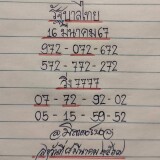 รัฐบาลไทย
16 มีนาคม 67
972 - 072 - 672
572 - 772 - 272
วิ่ง 7777
07 - 72 - 92 - 02
05 - 15 - 59 - 52